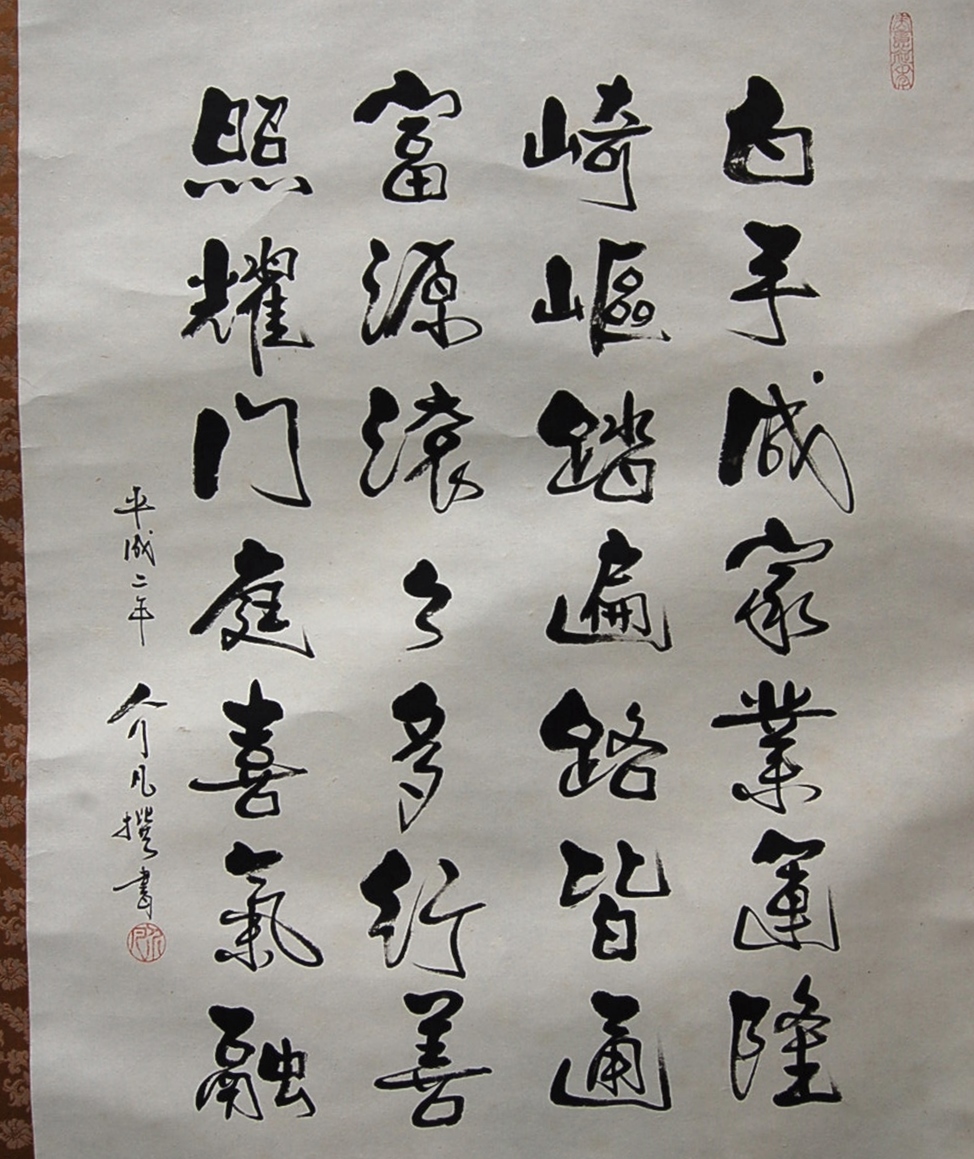 白手成家業運隆
崎嶇踏遍路皆通
富源滾々多行善
照耀門庭喜氣融
平成二年 介凡撰書